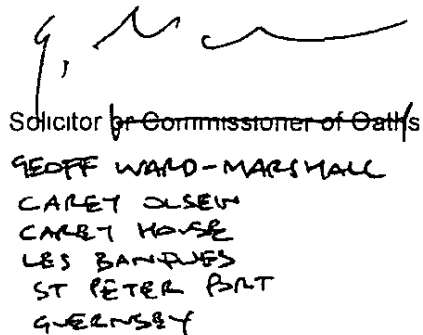 Solicitor or Commissioner of Oaths
GEOFF WARD-MARSHALL
CAREY OLSEN
CAREY HOUSE
LES BANQUES
ST PETER PORT
GUERNSEY